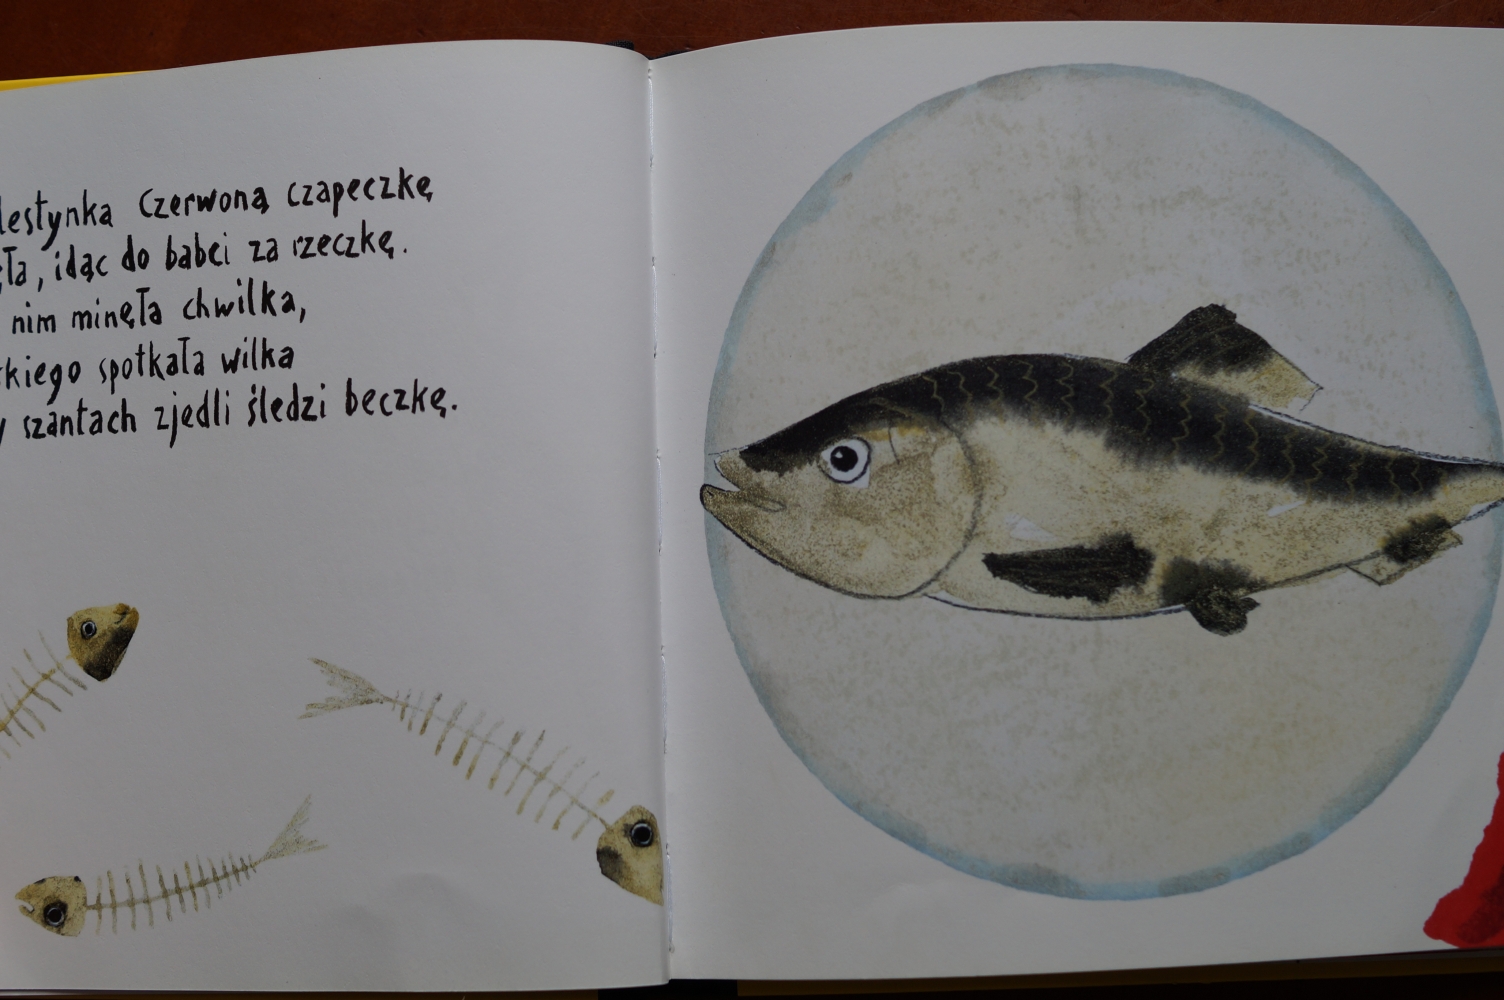 Czerwoną czapeczkę
, idąc do babci za rzeczkę.
nim minęła chwilka,
spotkała wilka
szantach zjedli śledzi beczkę.